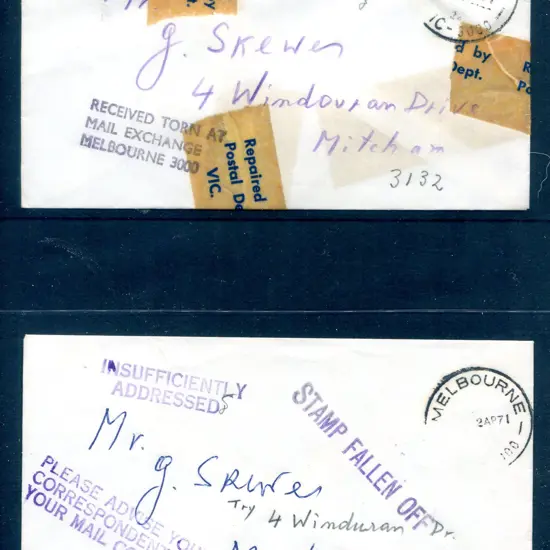 VIC-3000
G. Skewes
4 Windouran Drive
Mitcham
3132
RECEIVED TORN AT
MAIL EXCHANGE
MELBOURNE 3000
Repaired
Postal De
VIC.
d by
Dept.
Re
Po
INSUFFICIENTLY
ADDRESSED
STAMP FALLEN OFF
MELBOURNE - 1
2AP71
Mr.
G. Skewes
Try 4 Winduran Dr.
PLEASE ADVISE YOU
CORRESPONDENT
YOUR MAIL CO